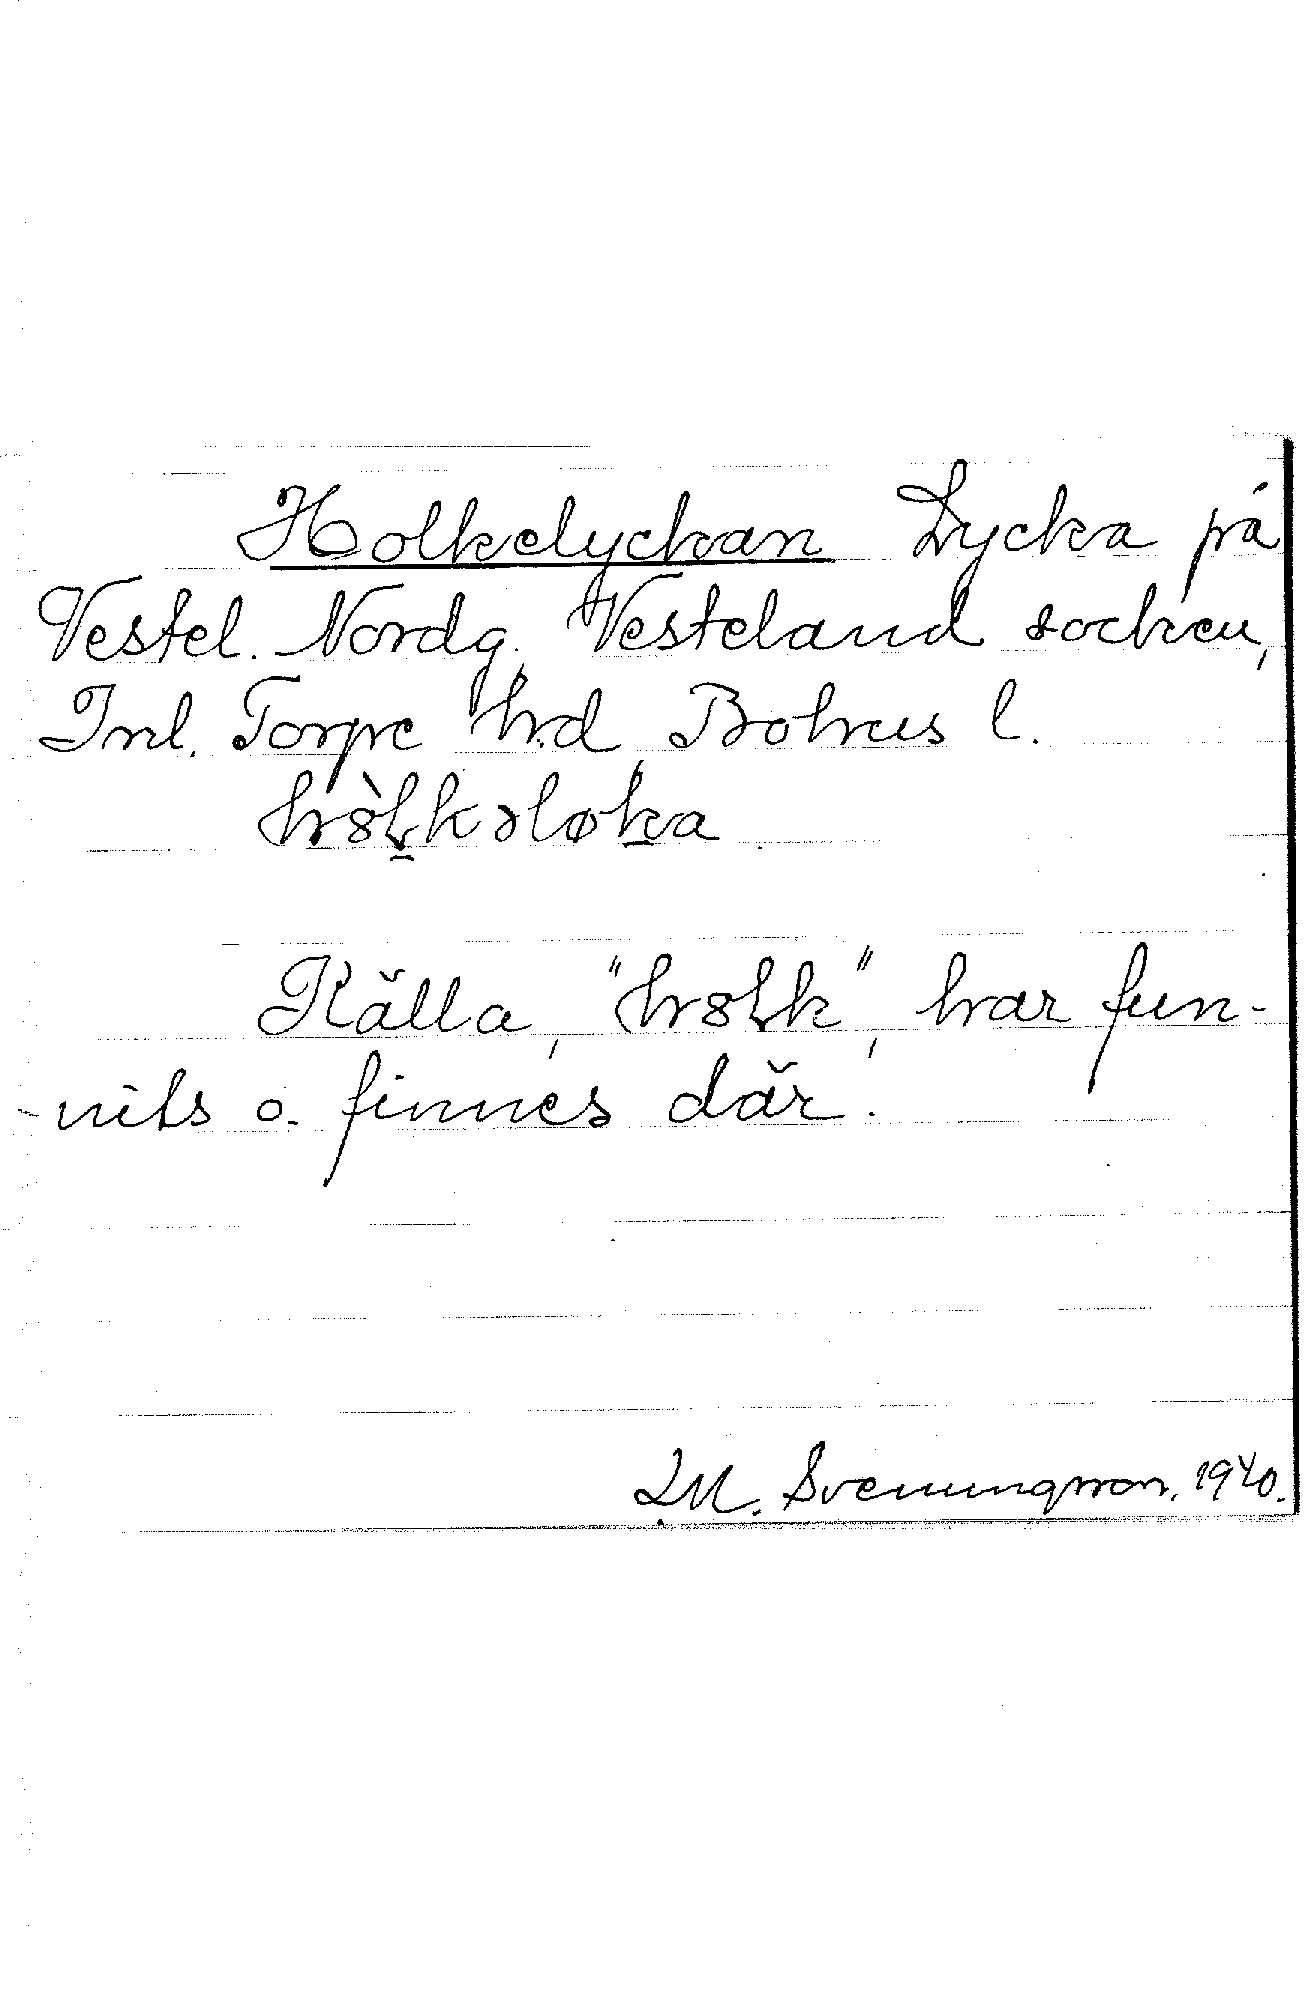 Holkelyckan Lycka på
Vestel. Nordg. Vesteland socken,
Inl. Torpe hd, Bohus l.
h8̀ḻkəløḵa
Källa, "h8lk", har fun-
nits o. finnes där.
L M. Svenungsson, 1940.